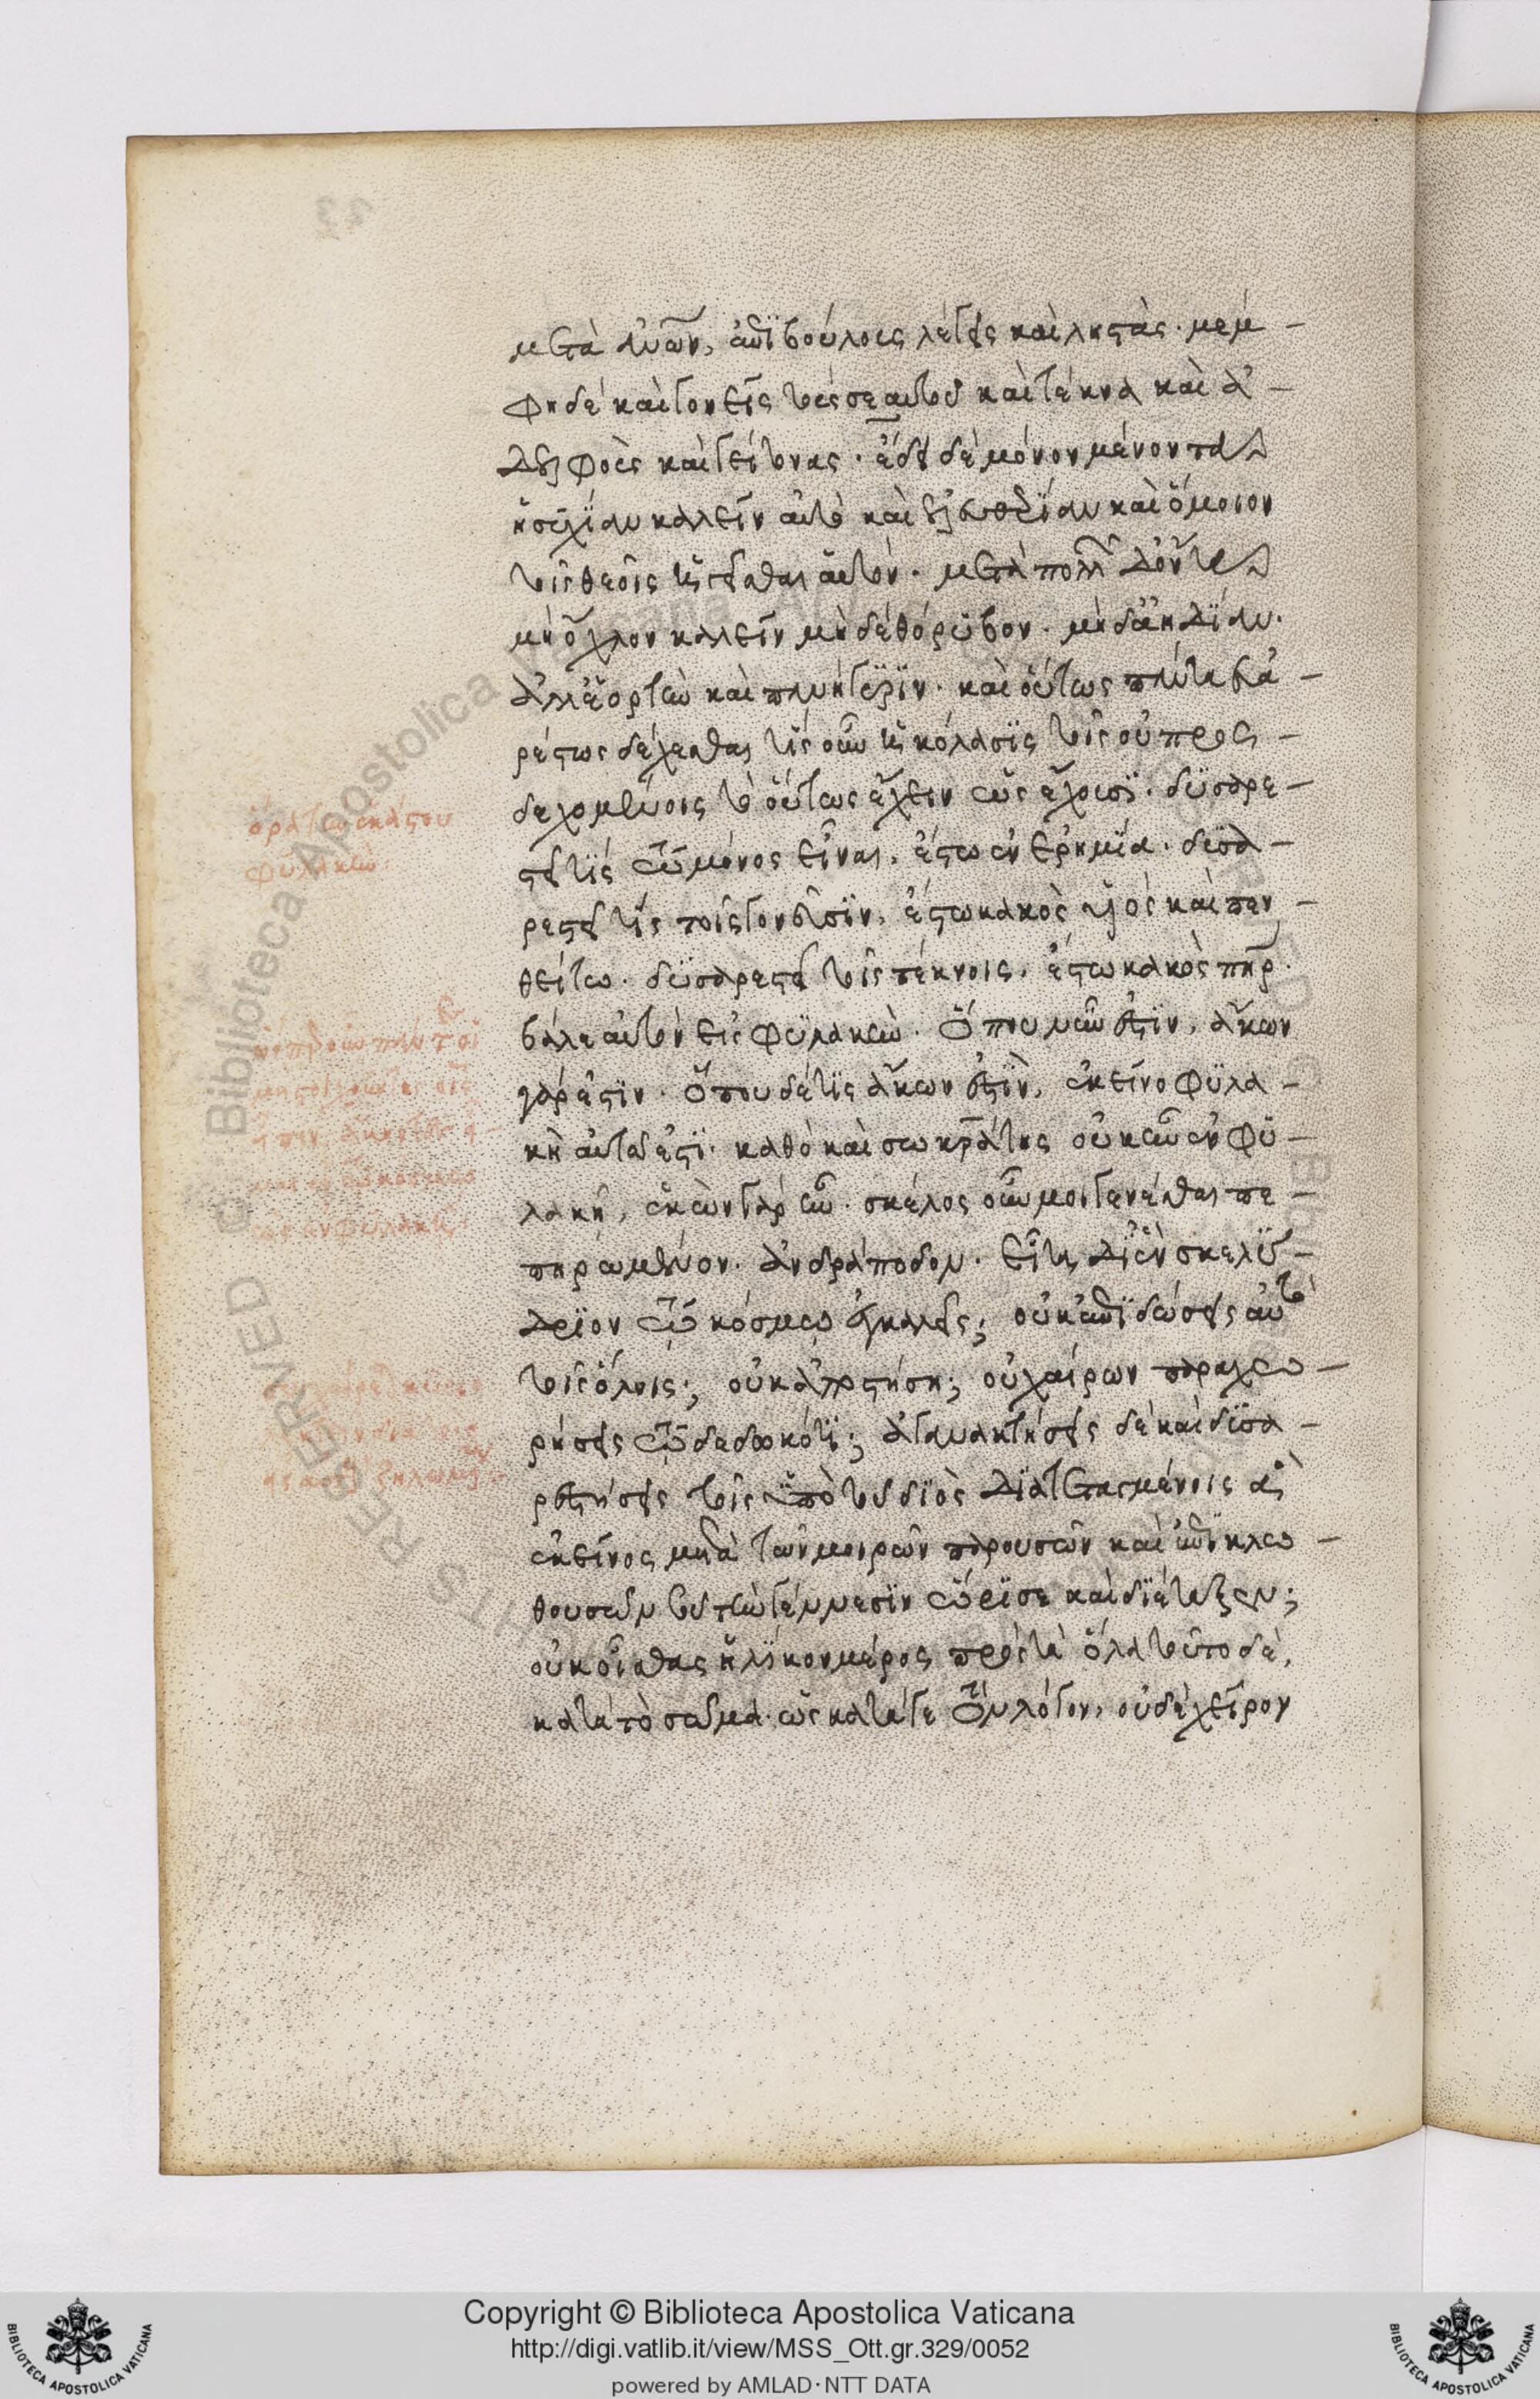 μετὰ ἀνων, ἐπιβούλους λέγεις καὶ λῃστάς. μέμ –
φῃ δὲ καὶ γονεῖς τοὺς σεαυτοῦ καὶ τέκνα καὶ ἀ –
δελφοὺς καὶ γείτονας. ἔδει δὲ μόνον μένοντα
ἡσυχίαν καλεῖν αὐτὸ καὶ ἐλευθερίαν καὶ ὅμοιον
τοῖς θεοῖς ἡγεῖσθαι αὑτόν. μετὰ πολλῶν δ' ὄντα
μὴ ὄχλον καλεῖν μηδὲ θόρυβον. μηδ' ἀηδίαν.
ἀλλ' ἑορτὴν καὶ πανήγυριν. καὶ οὕτως πάντα εὐα –
ρέστως δέχεσθαι τίς οὖν ἡ κόλασις τοῖς οὐ προσ –
δεχομένοις τὸ οὕτως ἔχειν ὡς ἔχουσι. δυσαρε –
στεῖ τις τῷ μόνος εἶναι. ἔστω ἐν ἐρημίᾳ. δυσα –
ρεστεῖ τις τοῖς γονεῦσιν, ἔστω κακὸς υἱὸς καὶ πεν –
θείτω. δυσαρεστεῖ τοῖς τέκνοις. ἔστω κακὸς πηρ.
βάλε αὐτὸν εἰς φυλακήν. ὅπου νῦν ἐστιν, ἄκων
γάρ ἐστιν. ὅπου δέ τις ἄκων ἐστὶν, ἐκεῖνο φυλα –
κὴ αὐτῷ ἐστι. καθὸ καὶ σωκράτης οὐκ ἦν ἐν φυ –
λακῇ, ἑκὼν γὰρ ἦν. σκέλος οὖν μοι γενέσθαι πε –
πηρωμένον. ἀνδράποδον. εἶτα δι' ἓν σκελύ –
δριον τῷ κόσμῳ ἐγκαλεῖς; οὐκ ἐπιδώσεις αὐτὸ
τοῖς ὅλοις; οὐκ ἀποστήσῃ; οὐ χαίρων παραχω –
ρήσεις τῷ δεδωκότι; ἀγανακτήσεις δὲ καὶ δυσα –
ρεστήσεις τοῖς ὑπὸ τοῦ διὸς διατεταγμένοις ἃ
ἐκεῖνος μετὰ τῶν μοιρῶν παρουσῶν καὶ ἐπικλω –
θουσῶν σου τὴν γέννεσιν ὥρισε καὶ διέταξεν;
οὐκ οἶσθας ἡλίκον μέρος πρὸς τὰ ὅλα τοῦτο δὲ,
κατὰ τὸ σῶμα. ὡς κατά γε τὸν λόγον, οὐδὲ χεῖρον
ὁρατὴν ἑκάστου
φυλακὴν